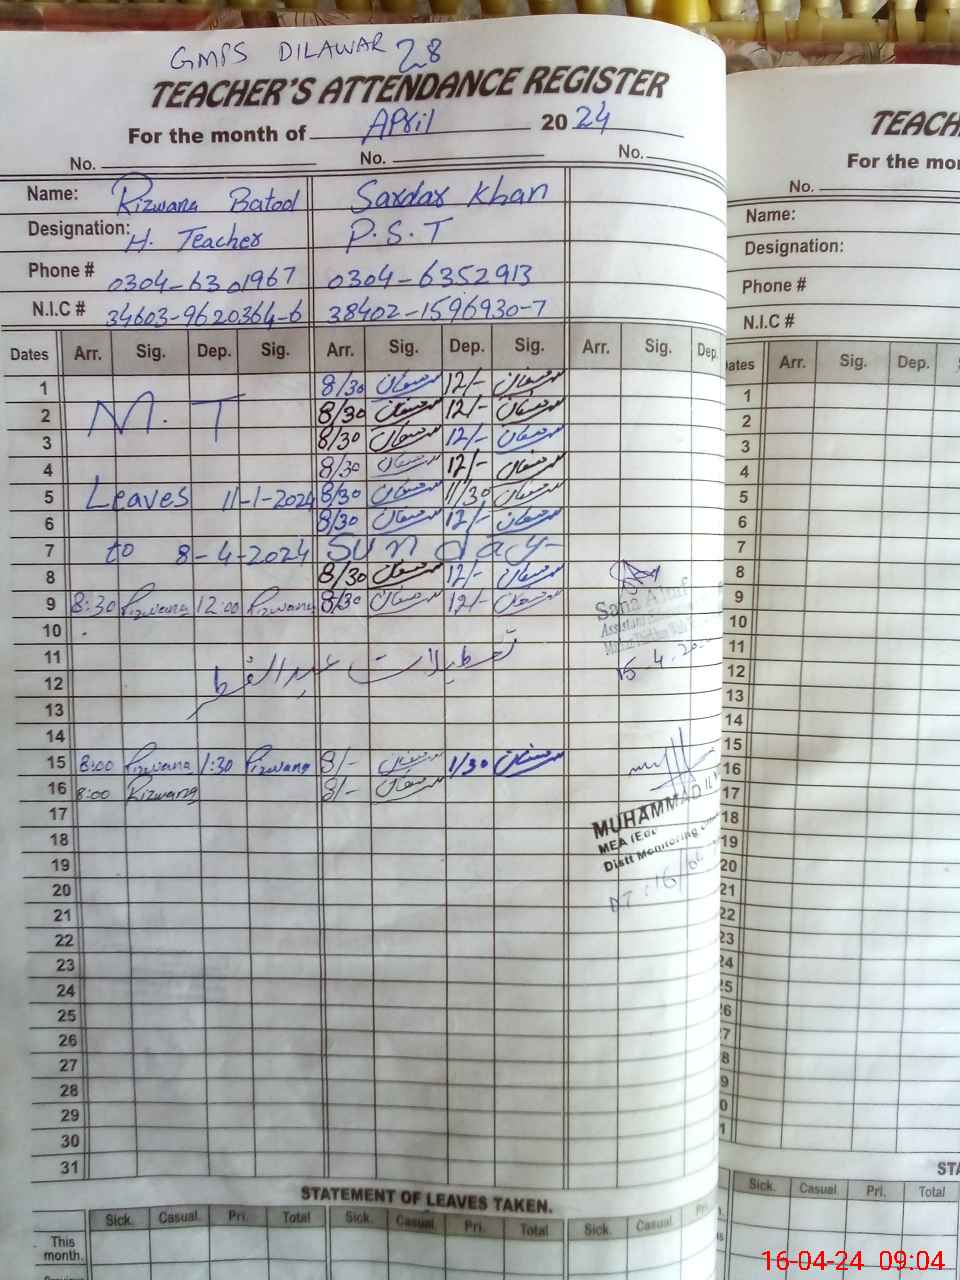 GMPS DILAWAR 28
TEACHER'S ATTENDANCE REGISTER
For the month of April 2024
No. No. No.
Name: Rizwana Batool Sardar Khan
Designation: H. Teacher P.S.T
Phone # 0304-6301967 0304-6352913
N.I.C # 34603-9620364-6 38402-1596930-7
Dates Arr. Sig. Dep. Sig. Arr. Sig. Dep. Sig. Arr. Sig. Dep.
1 8/30 12/-
2 M. T 8/30 12/-
3 8/30 12/-
4 8/30 12/-
5 Leaves 11-1-2024 8/30 11/30
6 8/30 12/-
7 to 8-4-2024 Sunday
8 8/30 12/-
9 8:30 Rizwana 12:00 Rizwana 8/30 12/-
10
11 تعطیلات عیدالفطر
12
13
14
15 8:00 Rizwana 1:30 Rizwana 8/- 1/30
16 8:00 Rizwana 8/-
17
18
19
20
21
22
23
24
25
26
27
28
29
30
31
Sana
Assistant
15.4.20
MUHAMMAD
MEA
Distt Monitoring
DT: 16/04
STATEMENT OF LEAVES TAKEN.
Sick. Casual. Pri. Total Sick. Casual. Pri. Total Sick. Casual Pri.
This month.
TEACH
For the mon
No.
Name:
Designation:
Phone #
N.I.C #
ates Arr. Sig. Dep.
1
2
3
4
5
6
7
8
9
10
11
12
13
14
15
16
17
18
19
20
21
22
23
24
25
26
27
28
29
30
31
STA
Sick. Casual Pri. Total
16-04-24 09:04